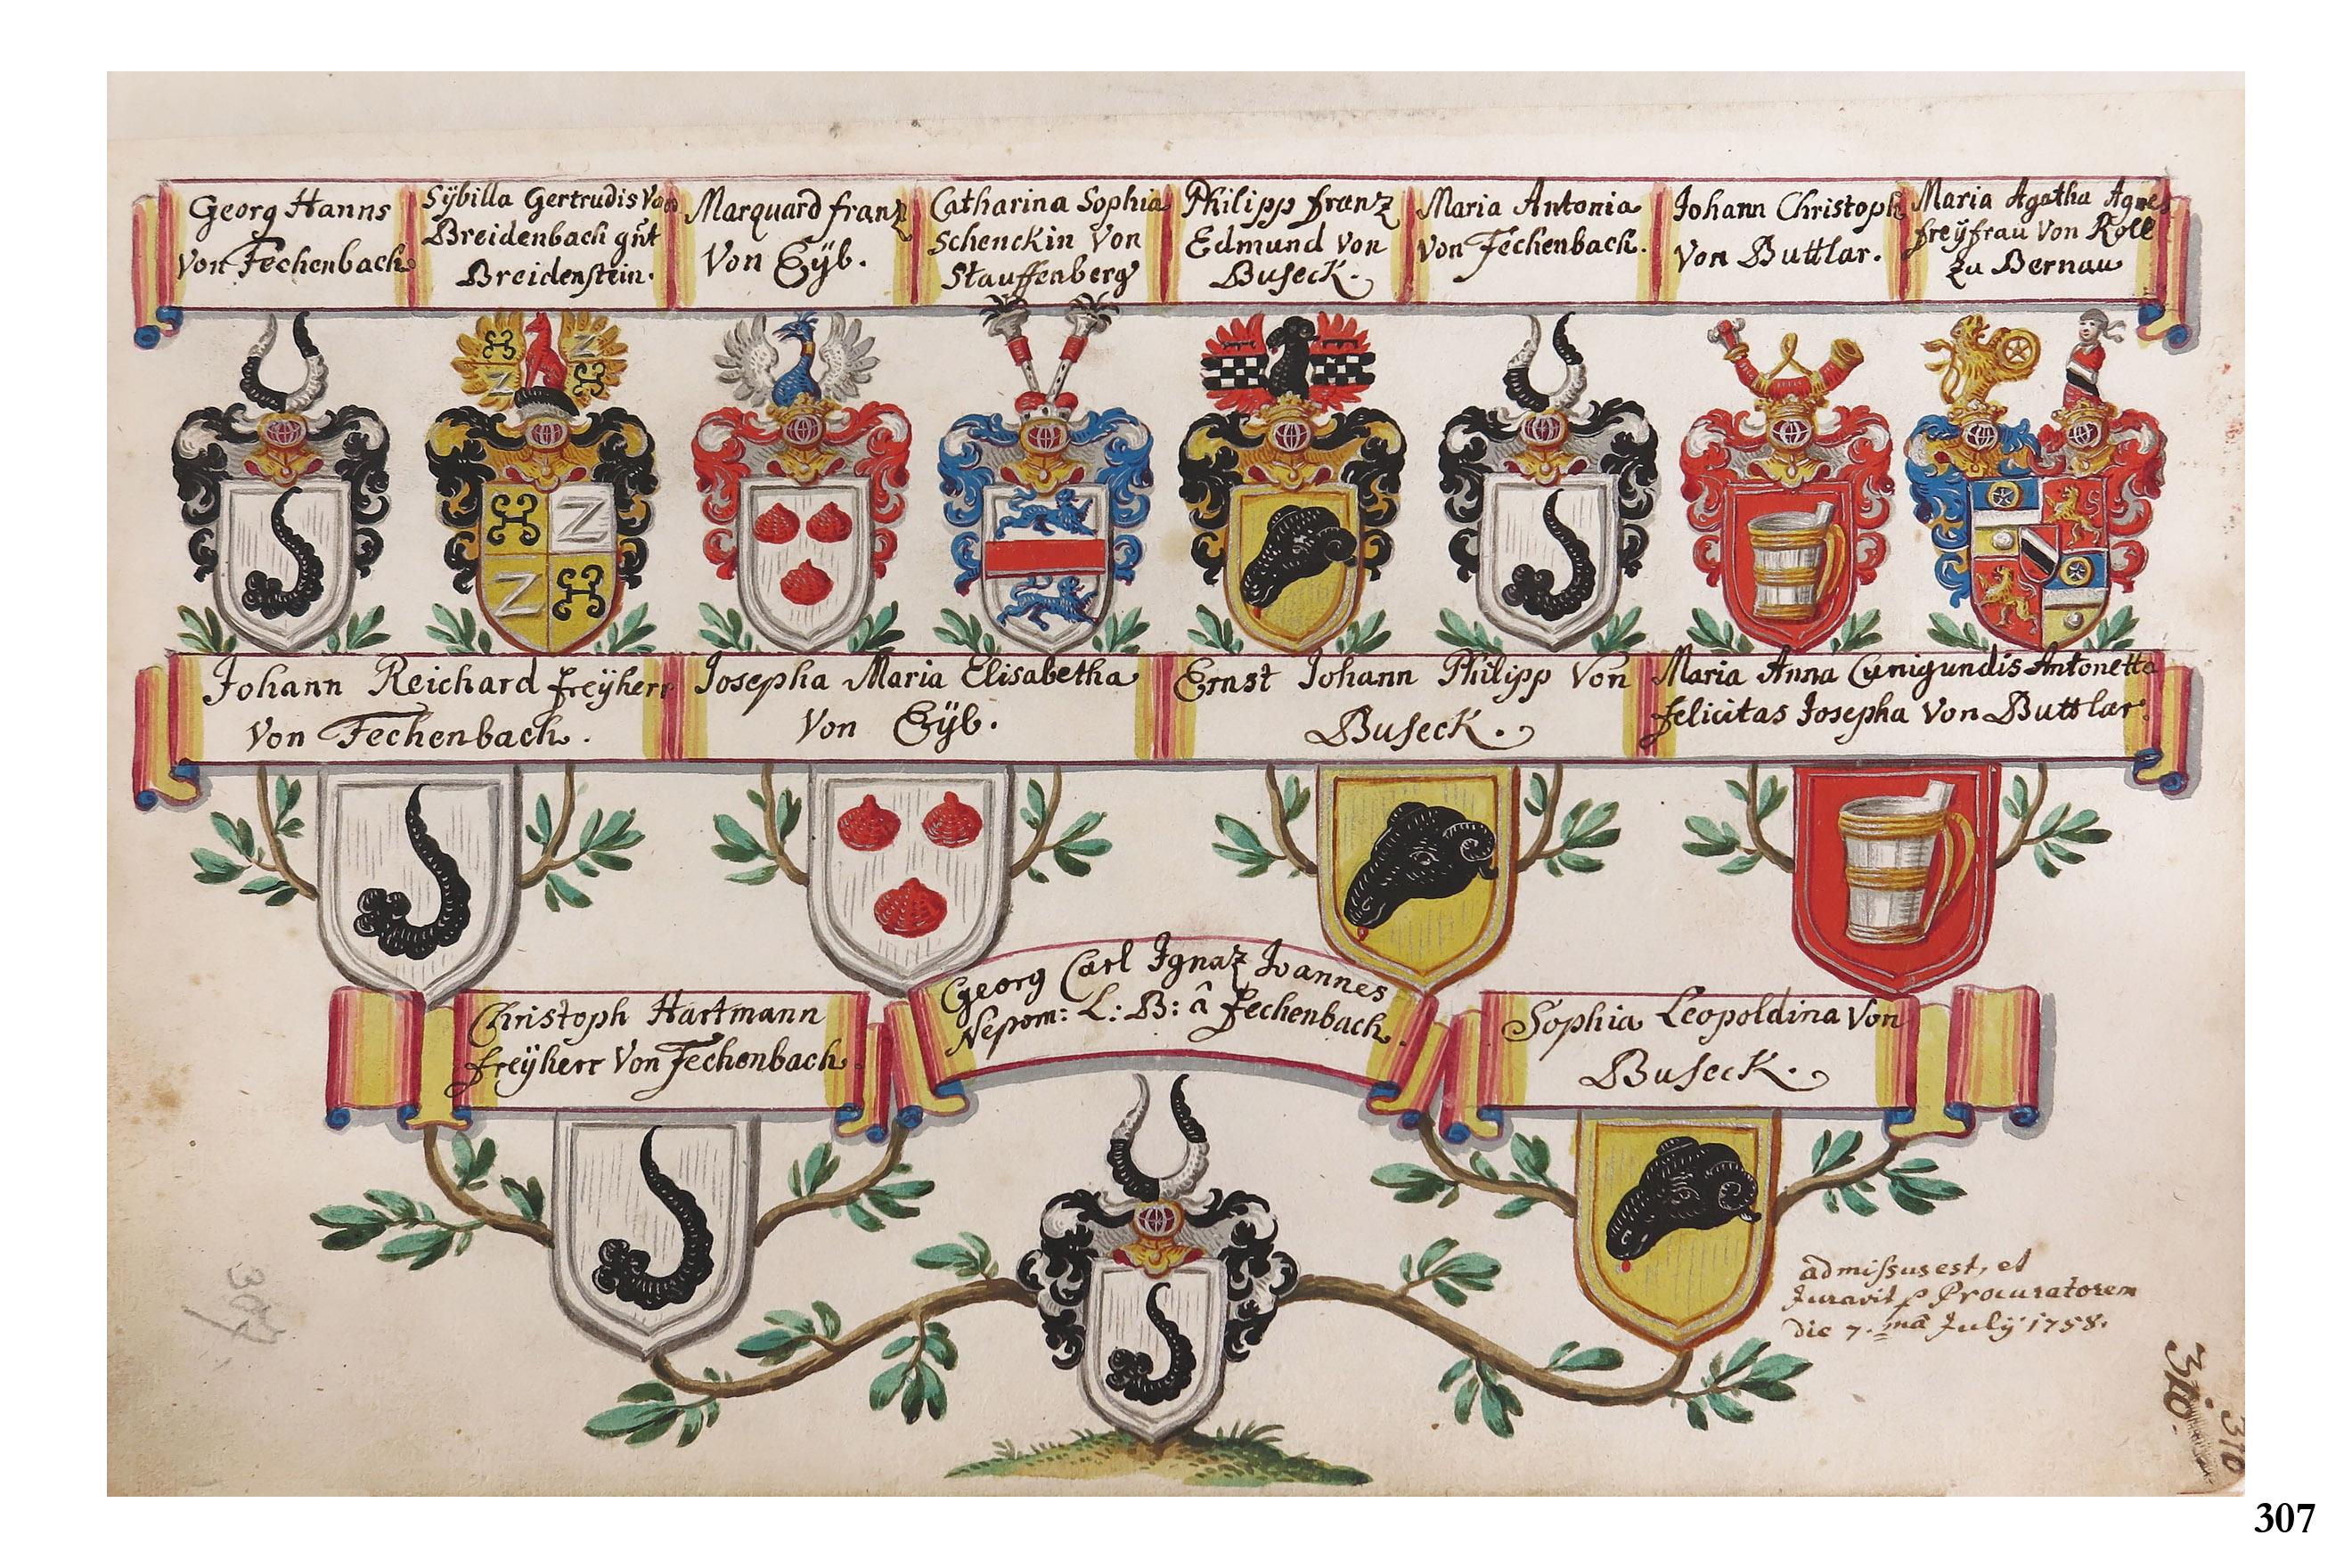 Georg Hanns
Von Fechenbach
Sÿbilla Gertrudis Von
Breidenbach gnt
Breidenstein.
Marquard franz
Von Eÿb.
Catharina Sophia
Schenckin Von
Stauffenberg
Philipp franz
Edmund Von
Buseck.
Maria Antonia
Von Fechenbach.
Johann Christoph
Von Buttlar.
Maria Agatha Agnes
freÿfrau Von Roll
zu Bernau
Johann Reichard freÿherr
Von Fechenbach.
Josepha Maria Elisabetha
Von Eÿb.
Ernst Johann Philipp Von
Buseck.
Maria Anna Cunigundis Antonetta
felicitas Josepha Von Buttlar.
Christoph Hartmann
freÿherr Von Fechenbach.
Georg Carl Ignaz Joannes
Nepom: L: B: â Fechenbach.
Sophia Leopoldina Von
Buseck.
admissus est, et
Juravit p Procuratorem
die 7.mâ Julÿ 1758.
307
310.
310
307